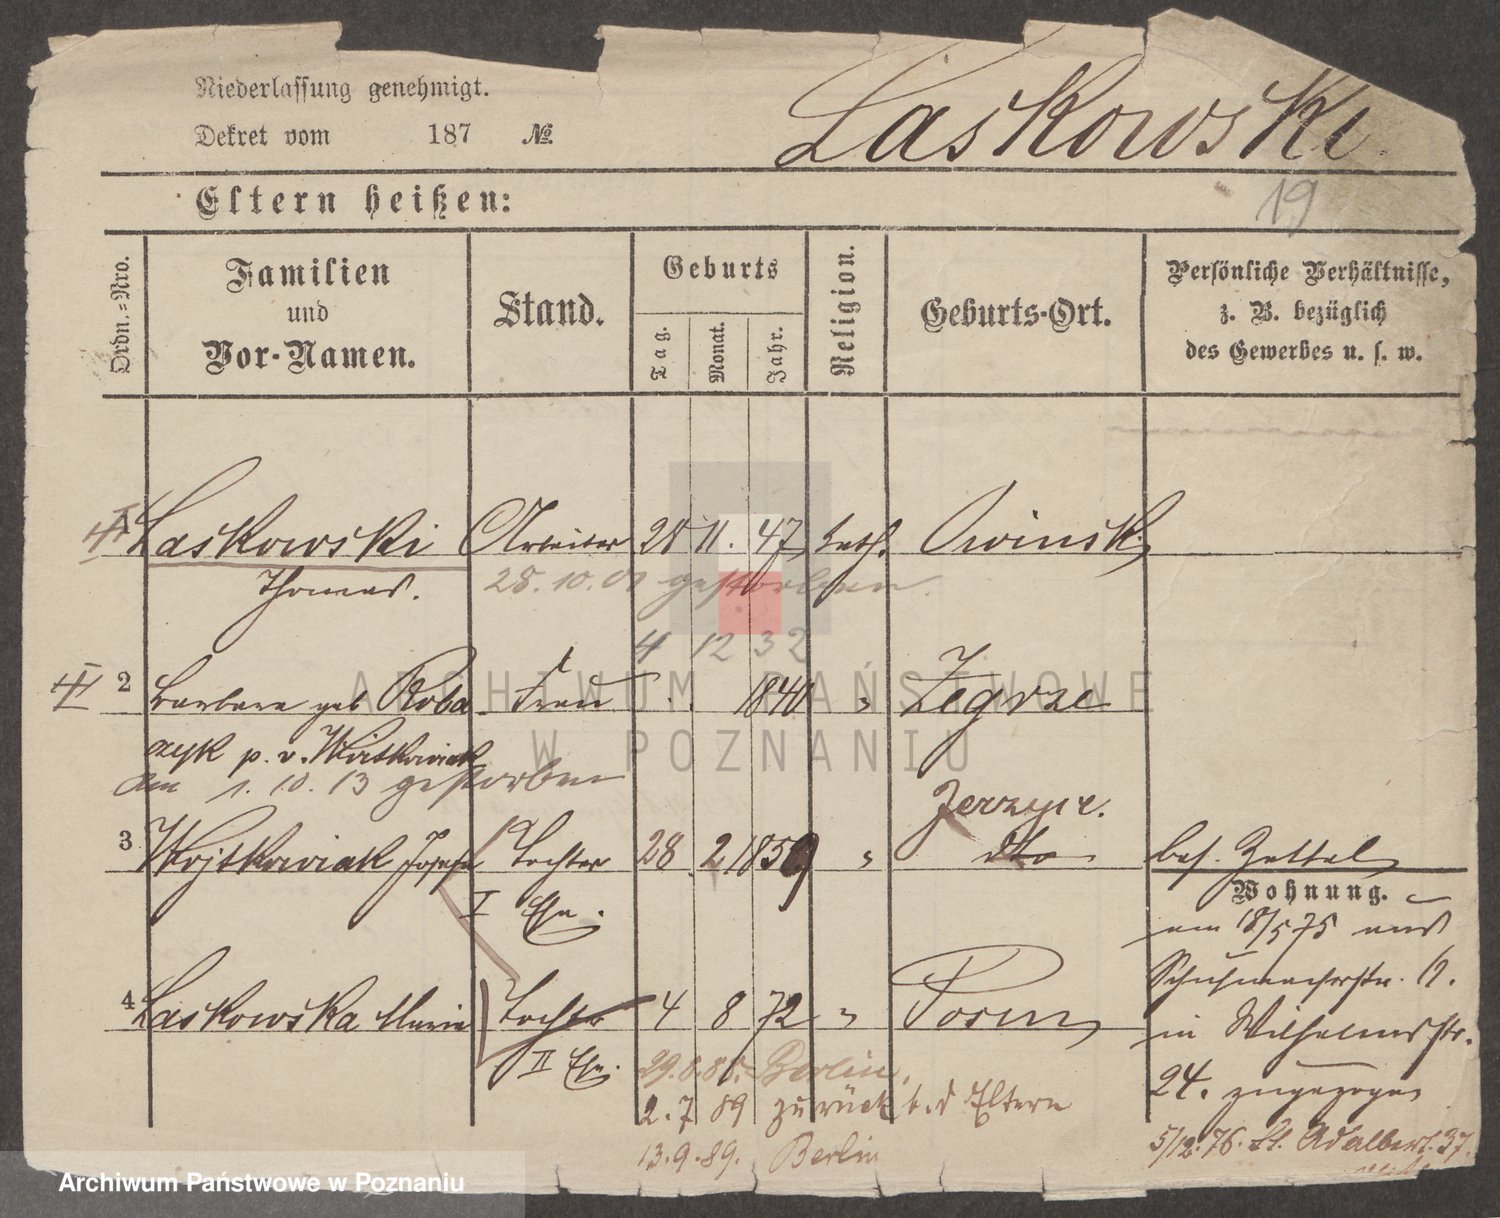 Niederlassung genehmigt.
Dekret vom 187 №
Laskowski
19
Eltern heißen:
Ordn.-Nro.
Familien
und
Vor-Namen.
Stand.
Geburts
Tag.
Monat.
Jahr.
Religion.
Geburts-Ort.
Persönliche Verhältnisse,
z. B. bezüglich
des Gewerbes u. s. w.
Laskowski Arbeiter 28 11. 47 kath. Owinsk
Thomas. 28.10.01 gestorben.
4 12 32
2 Barbara geb Roba Frau 1840 " Zegrze
czyk p. v. Woitkowiak
am 1. 10. 13 gestorben
Jerzyce.
3 Wojtkowiak Josefa Tochter 28 2 1859 " dto bes. Zettel
I Ehe.
Wohnung.
am 18/5 75 aus
Schuhmacherstr.
4 Laskowska Maria Tochter 4 8 72 " Posen
in Wilhelmsstr.
II Ehe. 29.6.88. Berlin.
24. zugezogen
2. 7 89 zurück b. d Eltern
5/12.76. St. Adalbert. 37.
13.9.89. Berlin
ARCHIWUM PAŃSTWOWE
W POZNANIU
Archiwum Państwowe w Poznaniu